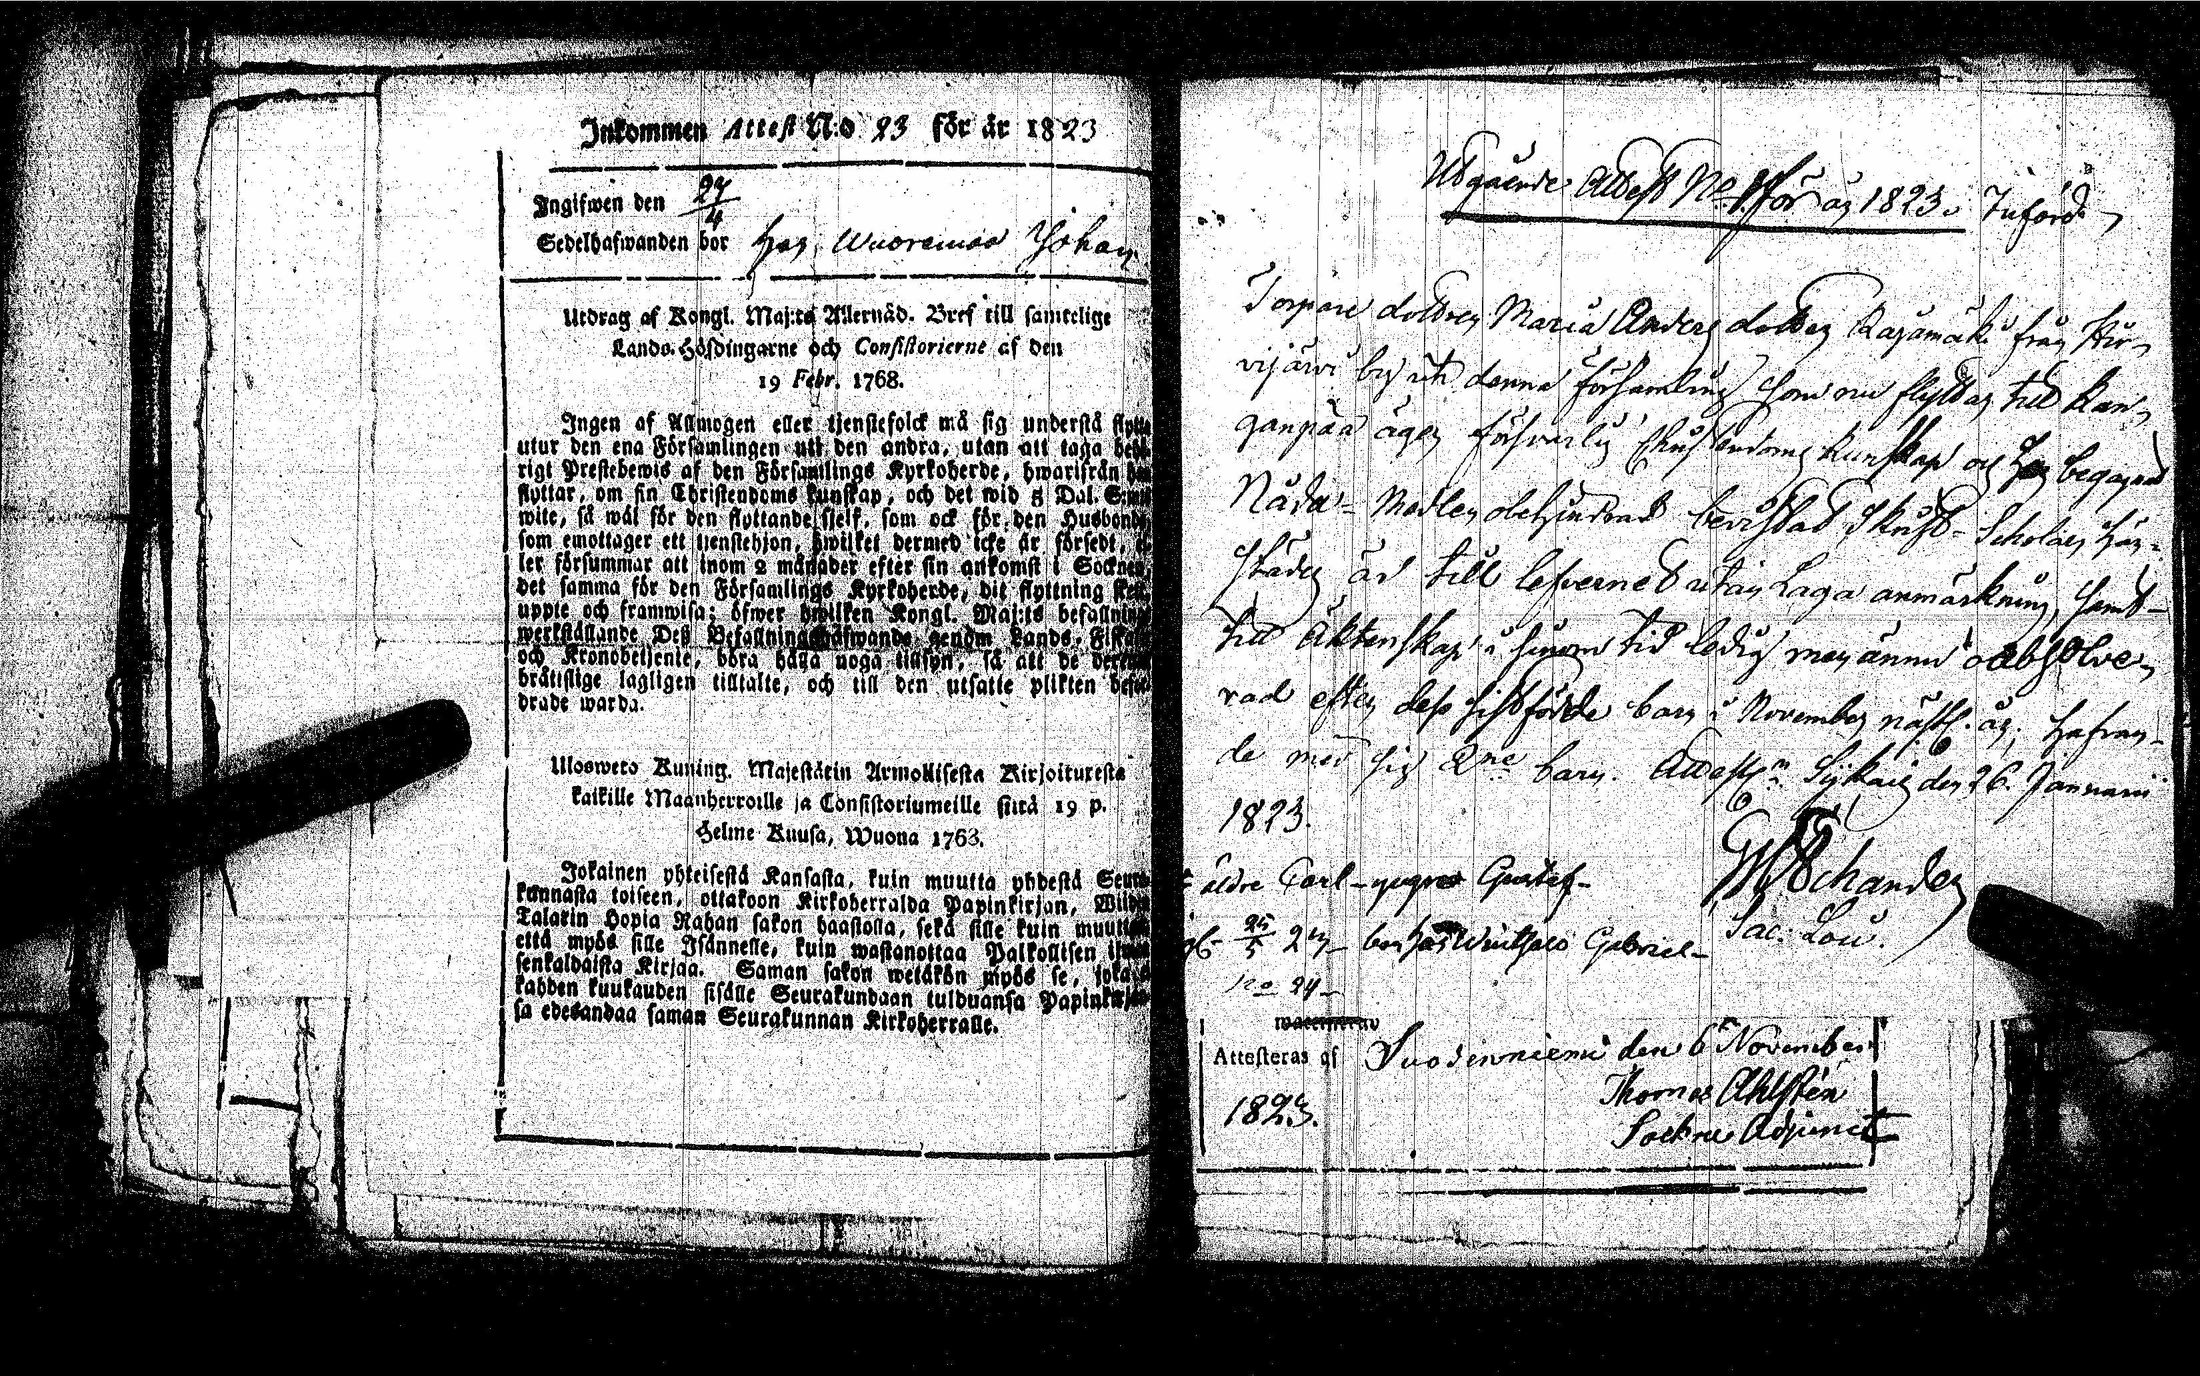 Inkommen Attest N:o 23 för år 1823
Ingifwen den 27/4
Sedelhafwanden bor hos Wuorenmaa Johan
Utdrag af Kongl. Maj:ts Allernåd. Bref till samtelige
Lands-Höfdingarne och Consistorierne af den
19 Febr. 1768.
Ingen af Allmogen eller tjenstefolck må sig understå flytta
utur den ena Församlingen uti den andra, utan att taga behö-
rigt Prestebewis af den Församlings Kyrkoherde, hwarifrån han
flyttar, om sin Christendoms kunskap, och det wid 5 Dal. S:mts
wite, så wäl för den flyttande sjelf, som ock för den Husbonde,
som emottager ett tjenstehjon, hwilket dermed icke är försedt, el-
ler försummar att inom 2 månader efter sin ankomst i Socknen,
det samma för den Församlings Kyrkoherde, dit flyttning sker,
uppte och framwisa; öfwer hwilken Kongl. Maj:ts befallning
werkställande Deß Befallningshafwande genom Lands-Fiskaler
och Kronobetjente, böra hålla noga tillsyn, så att de deremot
bråttslige lagligen tilltalte, och till den utsatte plikten befor-
drade warda.
Uloswето Kuning. Majestätin Armollisesta Kirjoituxesta
kaikille Maanherroille ja Consistoriumeille siitä 19 p.
Helme Kuusa, Wuona 1763.
Jokainen yhteisestä Kansasta, kuin muutta yhdestä Seura-
kunnasta toiseen, ottakoon Kirkoherralda Papinkirjan, Wiiden
Talarin Hopia Rahan sakon haastolla, sekä sille kuin muuttaa
että myös sille Isännelle, kuin wastanottaa Palkollisen ilman
senkaldaista Kirjaa. Saman sakon wetäkön myös se, joka ei
kahden kuukauden sisälle Seurakundaan tulduansa Papinkirjan-
sa edesandaa saman Seurakunnan Kirkoherralle.
Utgående Attest No 1 för år 1823. Införd
Torpare dottren Maria Anders dotter Rajamäki från Kir-
vijärvi by uti denna församling som nu flyttar till Kan-
ganpää äger försvarlig Christendoms kunskap och har begagnat
Nåda-Medlen obehindrat bevistat Skrift-Scholan här-
städes är till lefvernet utan Laga anmärkning, samt
till Äktenskap i sinom tid ledig men ännu oabsolve-
rad efter dess sistfödde barn i November nästl. år; hafvan-
de med sig 2ne barn. Attest. Sykais den 26. Januarii
1823.
äldre Carl - yngre Gustaf -
25/5 bor hos Gabriel -
No 24 -
Sac: Low.
Attesteras af Suodenniemi den 6 November
1823.
Thomas Ahlstén
Sockne Adjunct